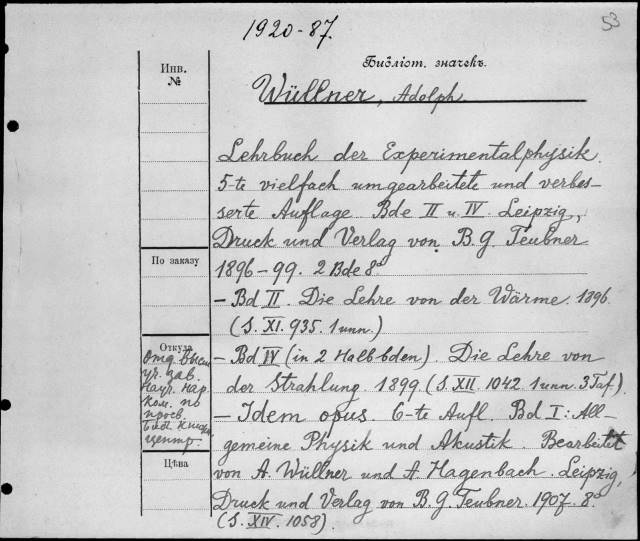 1920-87.
53
Инв.
№
Библіот. значекъ.
Wüllner, Adolph.
Lehrbuch der Experimentalphysik.
5-te vielfach umgearbeitete und verbes-
serte Auflage. Bde II u. IV. Leipzig,
Druck und Verlag von B. G. Teubner
1896-99. 2 Bde 8°
По заказу
- Bd II. Die Lehre von der Wärme. 1896.
(S. XI. 935. 1 unn.)
Откуда
Отд. Высш.
уч. зав.
Науч. Нар.
ком. по
просв.
центр.
- Bd IV (in 2 Halbbden). Die Lehre von
der Strahlung. 1899. (S. XII. 1042. 1 unn. 3 Taf.)
- Idem opus. 6-te Aufl. Bd I: All-
gemeine Physik und Akustik. Bearbeitet
Цѣна
von A. Wüllner und A. Hagenbach. Leipzig,
Druck und Verlag von B. G. Teubner. 1907. 8°
(S. XIV. 1058).